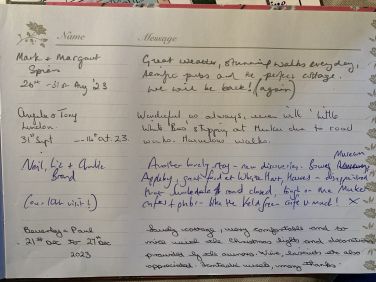 Name Message
Mark & Margaret Great weather, stunning walks everyday,
terrific pubs and the perfect cottage.
26th - 31st Aug '23 We will be back! (again)
Angela & Tony Wonderful as always, even with 'Little
London White Bus' stopping at Muker due to road
31st Sept - 14th Oct. 23. works. Marvellous walks.
Neil, Liz & Another lovely stay - new discoveries - Bowes Museum
Appleby, great food at White Hart, Hawes - disappointed
(our 10th visit!) road closed, though on the Muker
cafes & pubs - like the Keld free-cafe v. much! X
Beverley & Paul Lovely cottage, very comfortable and so
21st Dec to 27th Dec nice with the Christmas lights and decorations
2023 provided by the owners. Wine, were also
appreciated. Fantastic week, many thanks.